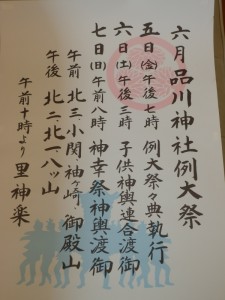 六月品川神社例大祭
五日(金)午後七時 例大祭々典執行
六日(土)午後三時 子供神輿連合渡御
七日(日)午前八時 神幸祭神輿渡御
午前 北三、小関、袖ヶ崎、御殿山
午後 北二、北一、八ツ山
午前十時より 里神楽